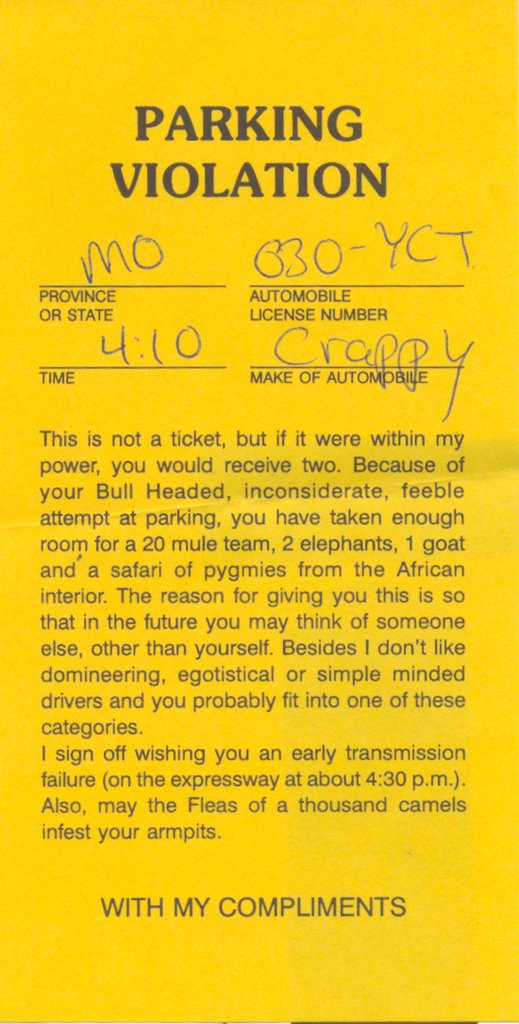 PARKING
VIOLATION
MO 030-YCT
PROVINCE OR STATE AUTOMOBILE LICENSE NUMBER
4:10 Crappy
TIME MAKE OF AUTOMOBILE
This is not a ticket, but if it were within my
power, you would receive two. Because of
your Bull Headed, inconsiderate, feeble
attempt at parking, you have taken enough
room for a 20 mule team, 2 elephants, 1 goat
and a safari of pygmies from the African
interior. The reason for giving you this is so
that in the future you may think of someone
else, other than yourself. Besides I don't like
domineering, egotistical or simple minded
drivers and you probably fit into one of these
categories.
I sign off wishing you an early transmission
failure (on the expressway at about 4:30 p.m.).
Also, may the Fleas of a thousand camels
infest your armpits.
WITH MY COMPLIMENTS